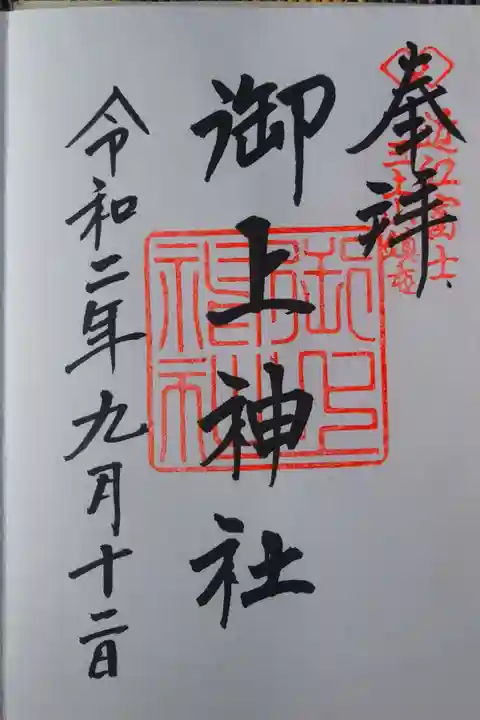 奉拝
近江富士
御上神社
御上神社
令和二年九月十二日